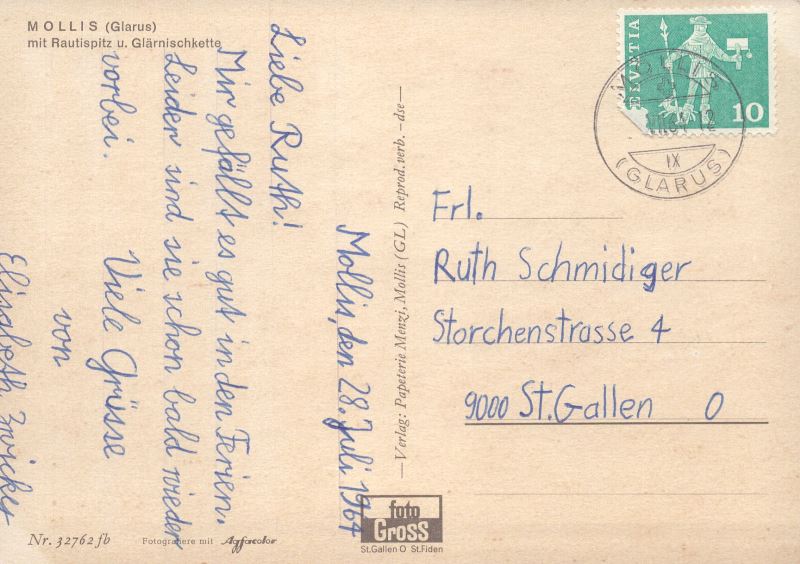 MOLLIS (Glarus)
mit Rautispitz u. Glärnischkette
Mollis, den 28. Juli 1964
Liebe Ruth!
Mir gefällt es gut in den Ferien.
Leider sind sie schon bald wieder
vorbei.
Viele Grüsse
von
Elisabeth Zwicker
Nr. 32762 fb
Fotografiere mit Agfacolor
—Verlag: Papeterie Menzi, Mollis (GL) Reprod. verb. –dse—
HELVETIA
10
MOLLIS
IX
(GLARUS)
Frl.
Ruth Schmidiger
Storchenstrasse 4
9000 St. Gallen O
foto
Gross
St.Gallen O St.Fiden